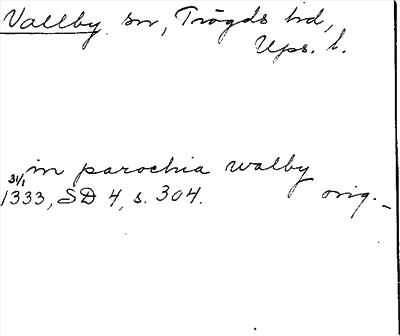 Vallby sn, Trögds hd,
Ups. l.
in parochia walby
31/1 1333, SD 4, s. 304. orig._